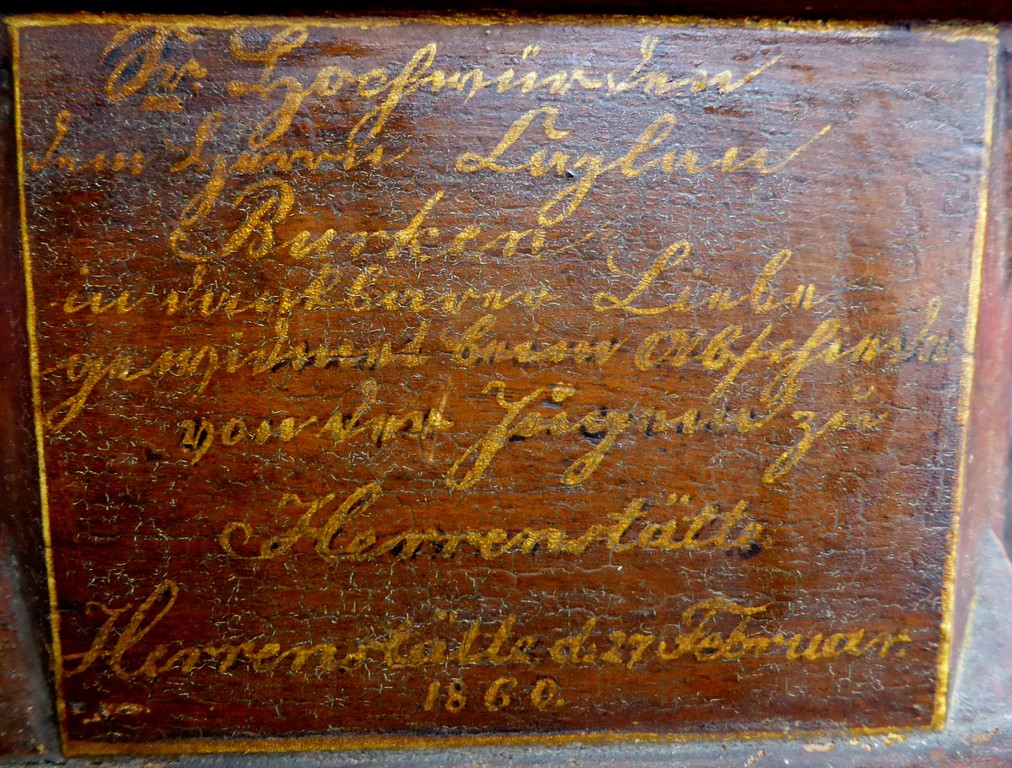 Sr. Hochwürden
dem Herrn Caplan
Burker
in dankbarer Liebe
gewidmet beim Abschiede
von der Jugend zu
Herrenstätte
Herrenstätte d. 27 Februar.
1860.